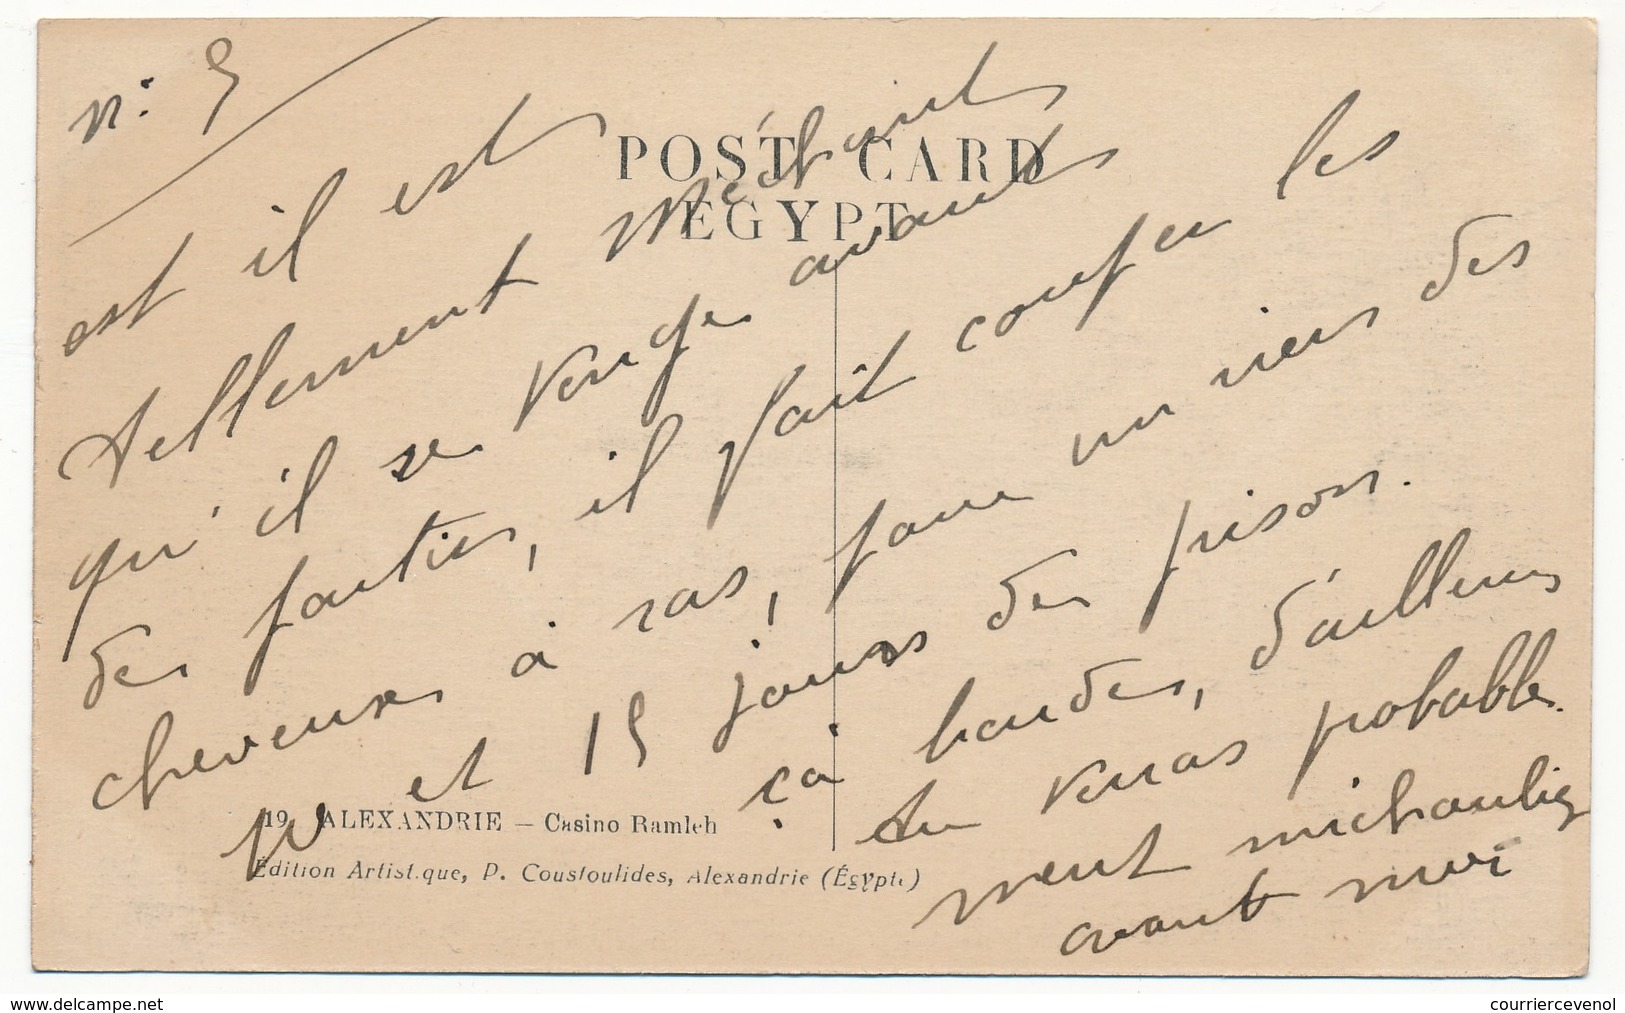 n: 5
POST CARD
EGYPT
est il est
tellement méchant
qu'il se venge avant
de partir, il fait couper les
cheveux à ras, pour un rien des
et 15 jours de prison.
ça barde, d'ailleurs
tu verras probable
ment
avant moi
19. ALEXANDRIE — Casino Ramleh
Édition Artistique, P. Coustoulides, Alexandrie (Égypte)
www.delcampe.net
courriercevenol